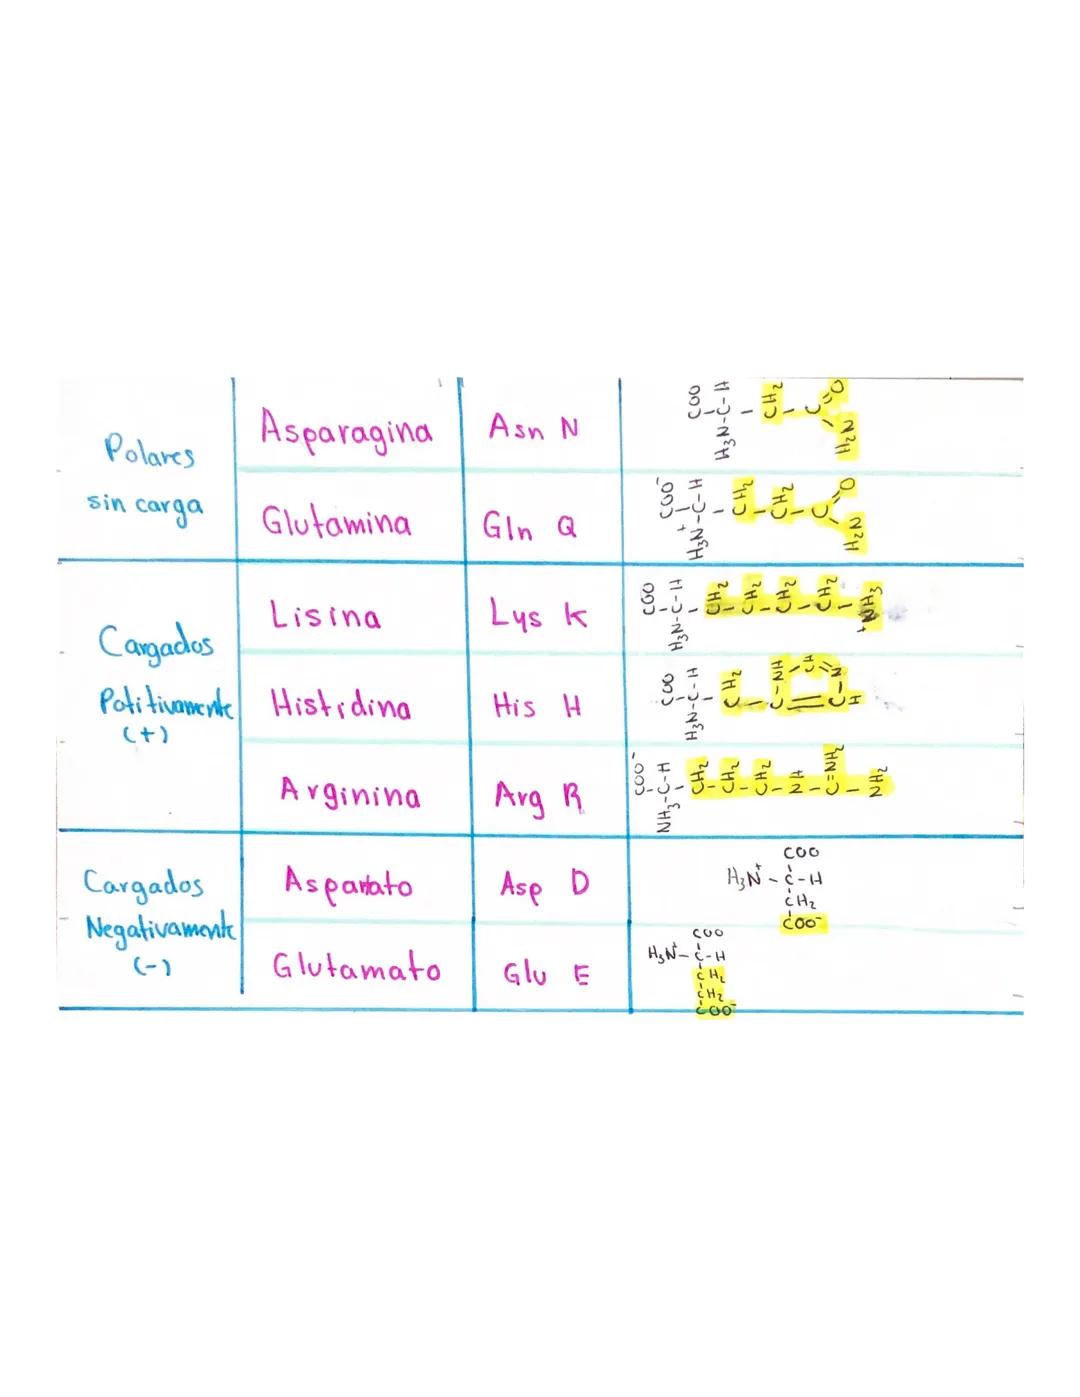 Polares
sin carga
Asparagina
Asn N
COO
H₃N-C-H
CH₂
C=O
H₂N
Glutamina
Gln Q
COO⁻
H₃N⁺-C-H
CH₂
CH₂
C=O
H₂N
Cargados
Potitivamente
(+)
Lisina
Lys K
COO
H₃N-C-H
CH₂
CH₂
CH₂
CH₂
⁺NH₃
Histidina
His H
COO
H₃N-C-H
CH₂
C-NH
C-N
H
Arginina
Arg R
COO⁻
NH₃-C-H
CH₂
CH₂
CH₂
NH
C=NH₂
NH₂
Cargados
Negativamente
(-)
Aspartato
Asp D
COO
H₃N⁺-C-H
CH₂
COO⁻
Glutamato
Glu E
COO
H₃N⁺-C-H
CH₂
CH₂
COO⁻